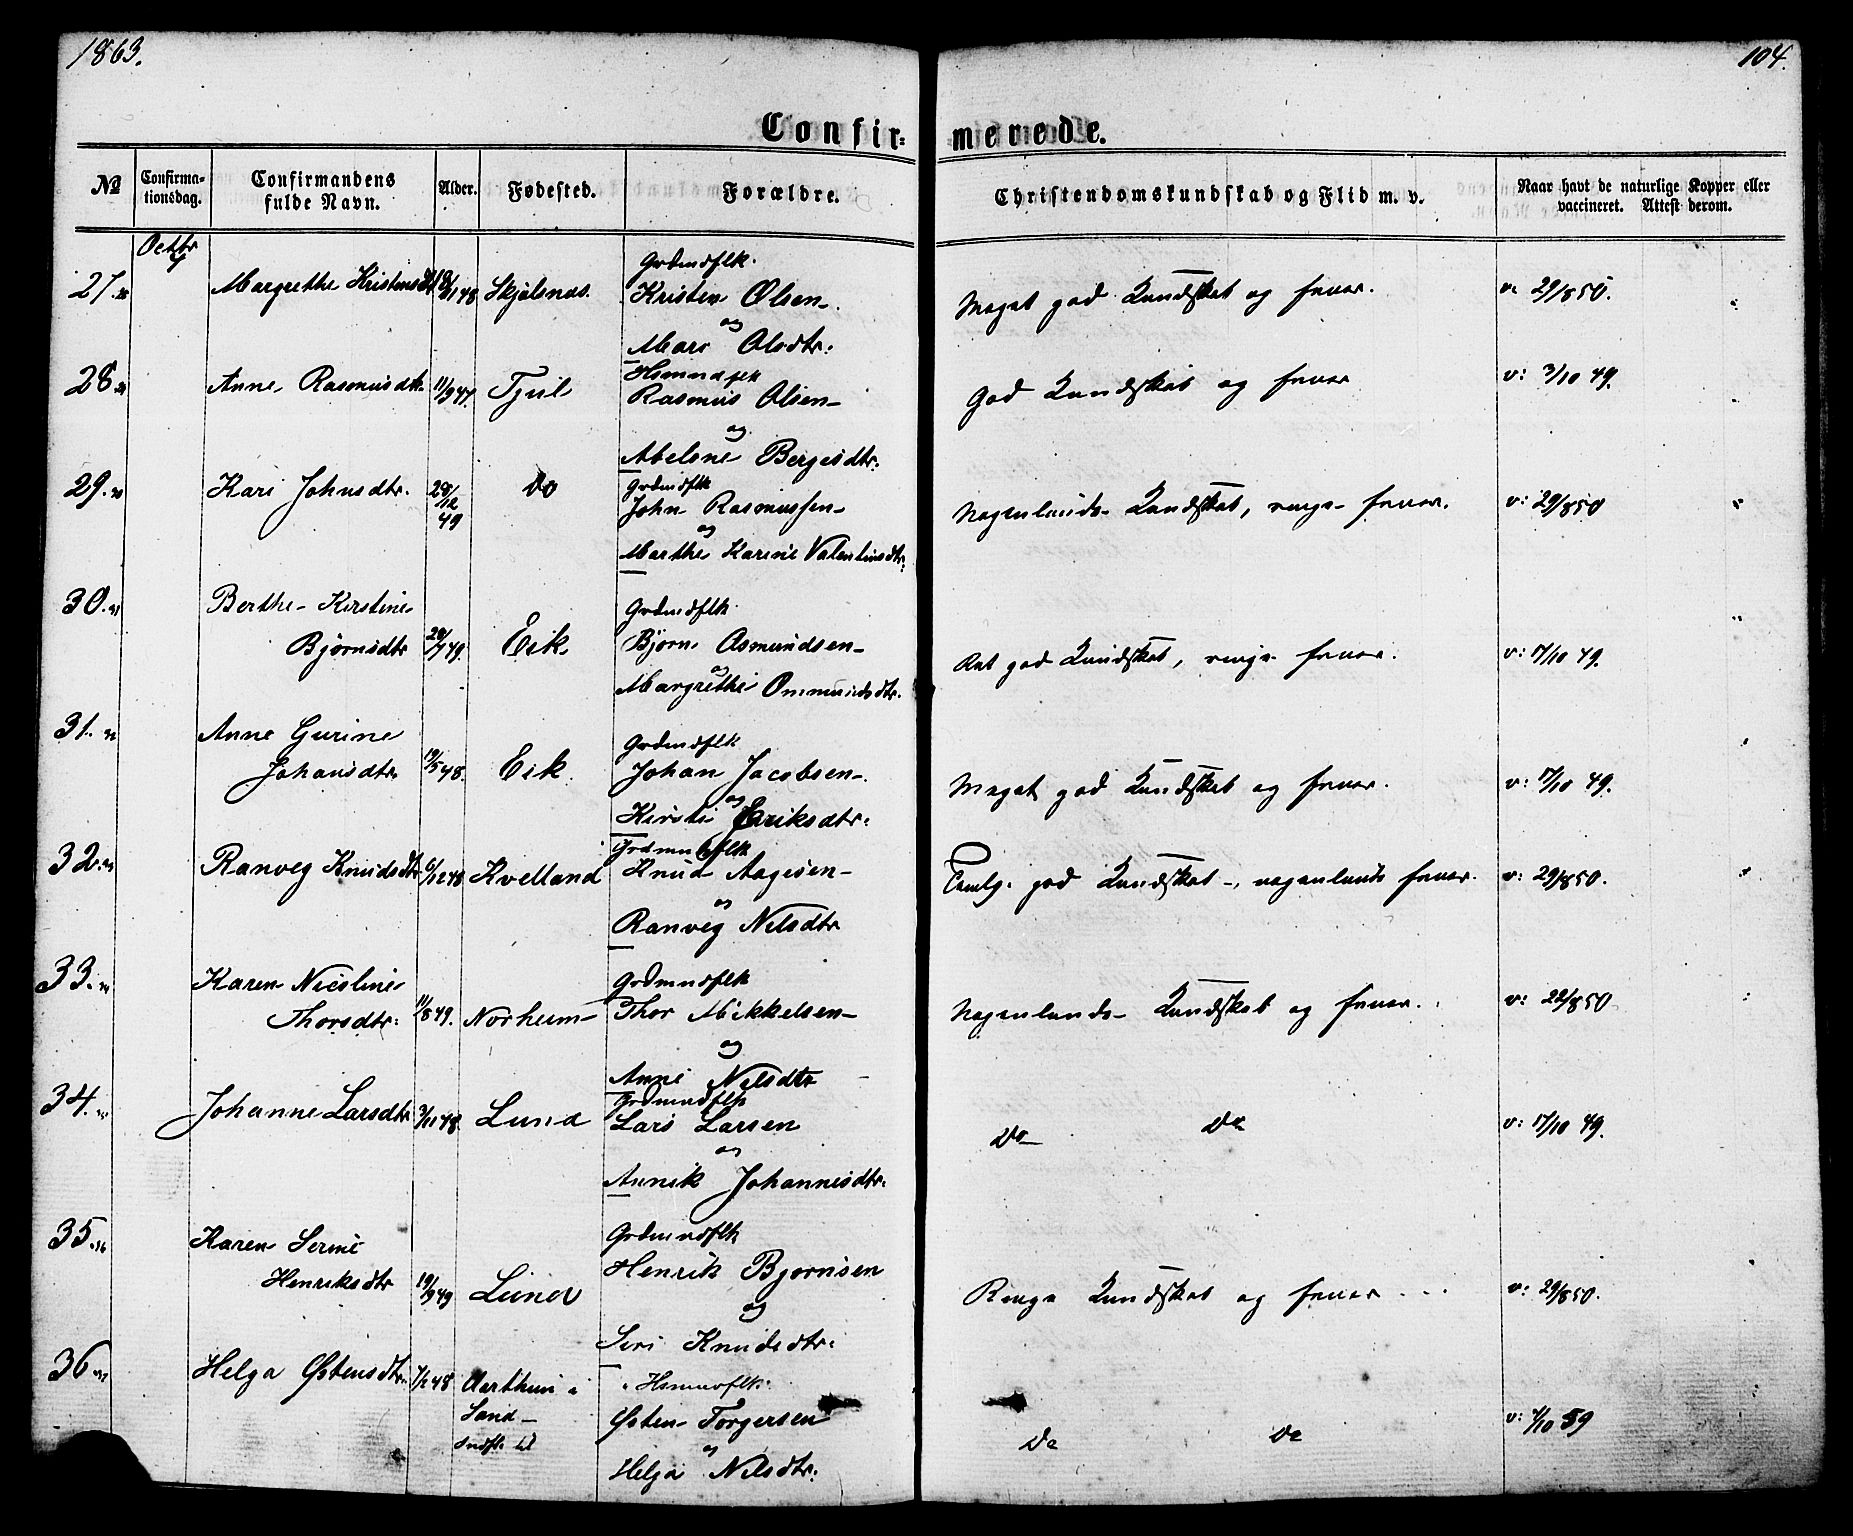 1863.
104.
Confir=
merede.
No
Confirma-
tionsdag.
Confirmandens
fulde Navn.
Alder.
Fødested.
Forældre.
Christendomskundskab og Flid m. v.
Naar havt de naturlige Kopper eller
vaccineret. Attest derom.
Octbr
4
27. Margrethe Kristensdtr 48 Skjølsnæs.
Grdmdflk.
Kristen Olsen
og
Mari Olsdtr:
Meget god Kundskab og
v. 29/8 50.
28. Anne Rasmusdtr. 11/9 47. Tjul
Hsmndflk
Rasmus Olsen
og
Abelone Bergesdtr:
God Kundskab og
v: 3/10 49.
29. Kari Johnsdtr. 28/12 49 Do
Grdmdflk
John Rasmussen
og
Marthe Karine Valentinsdtr:
Nogenlunde Kundskab, ringe
v: 29/8 50
30. Berthe Kirstine
Bjørnsdtr 49. Eik
Grdmdflk
Bjørn Asmundsen
og
Margrethe Ommundsdtr.
god Kundskab, ringe
v: 17/10 49.
31. Anne Gurine
Johansdtr 19/5 48. Eik
Grdmdflk
Johan Jacobsen
og
Kirsti Eriksdtr:
Meget god Kundskab og
v: 17/10 49.
32. Ranveg Knudsdtr 6/12 48 Kvelland
Grdmndflk
Knud Aagesen
og
Ranveg Nilsdtr
Temlg. god Kundskab, nogenlunde
v: 29/8 50.
33. Karen Nicoline
Thorsdtr: 11/8 49. Norheim
Grdmndflk
Thor Mikkelsen
og
Anne Nilsdtr
Nogenlunde Kundskab og
v: 29/8 50
34. Johanne Larsdtr 3/11 48 Lund
Grdmndflk
Lars Larsen
og
Annik Johannesdtr:
Do Do
v: 17/10 49.
35. Karen Serine
Henriksdtr 19/9 49 Lund
Grdmndflk
Henrik Bjørnsen
og
Siri Knudsdtr:
Ringe Kundskab og
v: 29/8 50.
36. Helga Østensdtr. 48 i
Sand
Hsmndflk:
Østen Torgersen
og
Helga Nilsdtr:
Do Do
v: 59